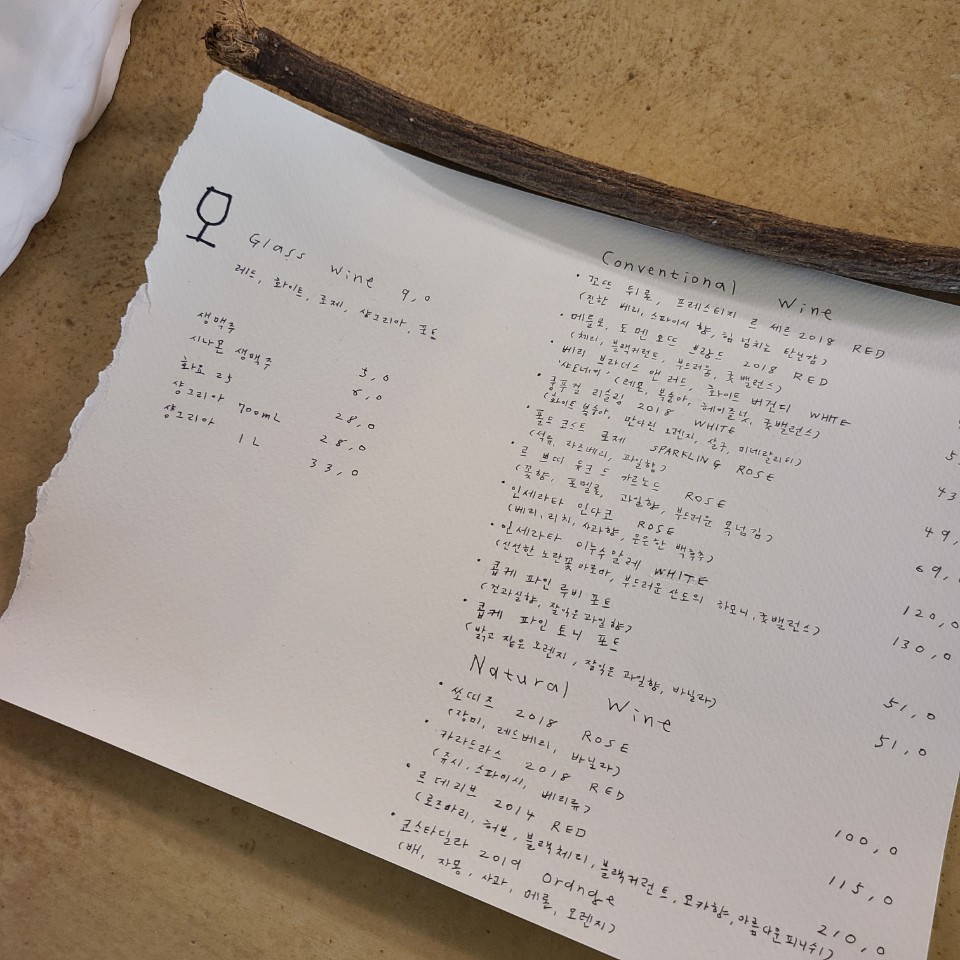 Glass Wine 9,0
레드, 화이트, 로제, 샹그리아, 포트
생맥주 5,0
시나몬 생맥주 6,0
화요 25 28,0
샹그리아 700mL 28,0
샹그리아 1L 33,0
Conventional Wine
• 꼬뜨 뒤 론, 프레스티지 르 세르 2018 RED
(진한 베리, 스파이시 향, 힘 넘치는 탄닌감)
• 메를로, 도멘 오뜨 브랑드 2018 RED
(체리, 블랙커런트, 부드러움, 굿밸런스)
• 베리 브라더스 앤 러드, 화이트 버건디 WHITE
'샤도네이', (레몬, 복숭아, 헤이즐넛, 굿밸런스)
• 쿵푸걸 리슬링 2018 WHITE
(화이트 복숭아, 만다린 오렌지, 살구, 미네랄리티)
• 골드 코스트 로제 SPARKLING ROSE
(석류, 라즈베리, 과일향) 43
• 르 쁘띠 듀크 드 가르노드 ROSE
(꽃향, 포멜로, 과일향, 부드러운 목넘김) 49,
• 인세라타 인다코 ROSE 69,
(베리, 리치, 사과향, 은은한 백후추)
• 인세라타 이누수알레 WHITE 120,0
(신선한 노란꽃 아로마, 부드러운 산도의 하모니, 굿밸런스) 130,0
• 콥케 파인 루비 포트
(건과실향, 잘익은 과일향) 51,0
• 콥케 파인 토니 포트
(밝고 짙은 오렌지, 잘익은 과일향, 바닐라) 51,0
Natural Wine
• 쏘띠즈 2018 ROSE
(장미, 레드베리, 바닐라) 100,0
• 카라드라스 2018 RED
(쥬시, 스파이시, 베리류) 115,0
• 르 데리브 2014 RED
(로즈마리, 허브, 블랙체리, 블랙커런트, 모카향, 아름다운피니쉬) 210,0
• 코스타딜라 2019 Orange
(배, 자몽, 사과, 메론, 오렌지)